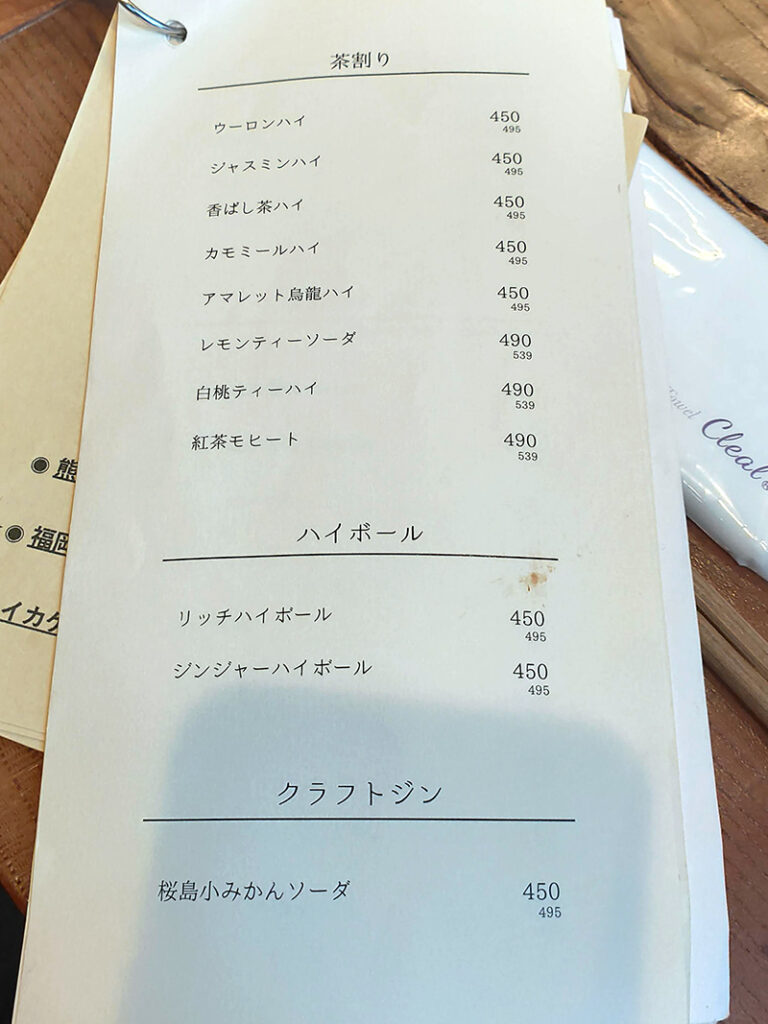 茶割り
ウーロンハイ 450
495
ジャスミンハイ 450
495
香ばし茶ハイ 450
495
カモミールハイ 450
495
アマレット烏龍ハイ 450
495
レモンティーソーダ 490
539
白桃ティーハイ 490
539
紅茶モヒート 490
539
ハイボール
リッチハイボール 450
495
ジンジャーハイボール 450
495
クラフトジン
桜島小みかんソーダ 450
495
◉熊
◉福岡
イカ
Towel
Cleal